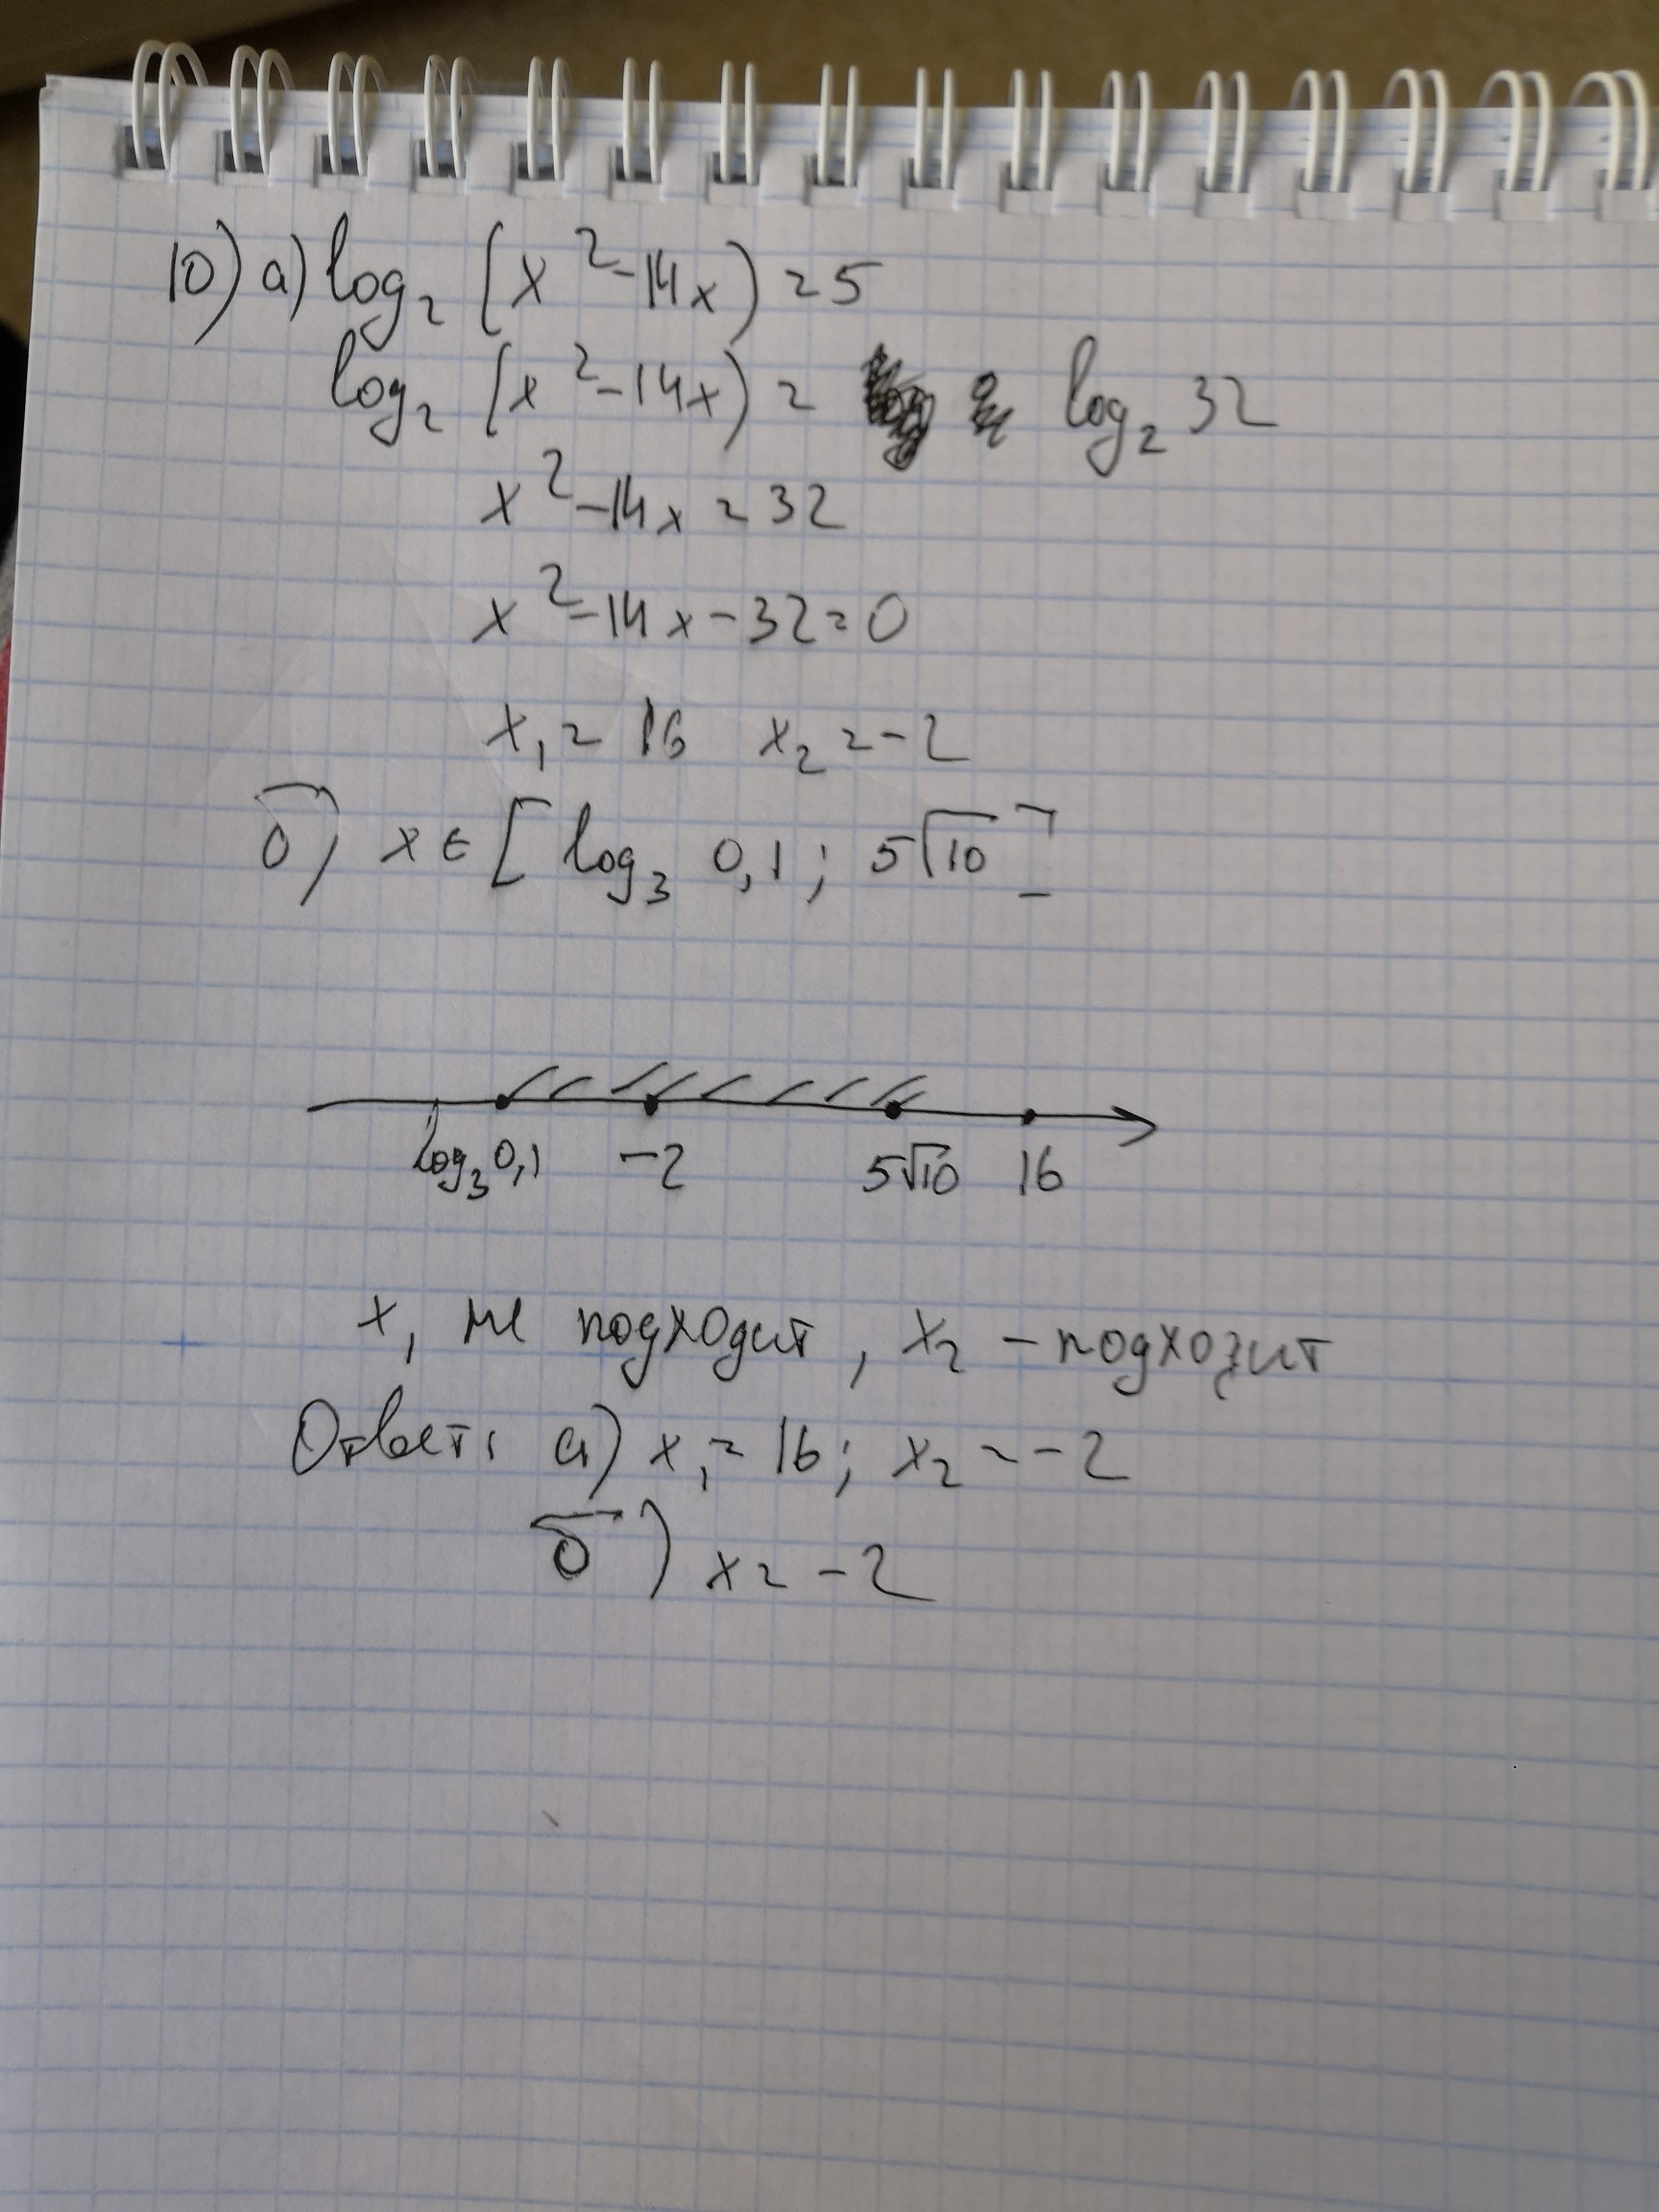 10) а) log₂ (x² - 14x) = 5
log₂ (x² - 14x) = log₂ 32
x² - 14x = 32
x² - 14x - 32 = 0
x₁ = 16 x₂ = -2
б) x ∈ [log₃ 0,1; 5√10]
log₃ 0,1 -2 5√10 16
x₁ не подходит, x₂ - подходит
Ответ: а) x₁ = 16; x₂ = -2
б) x = -2